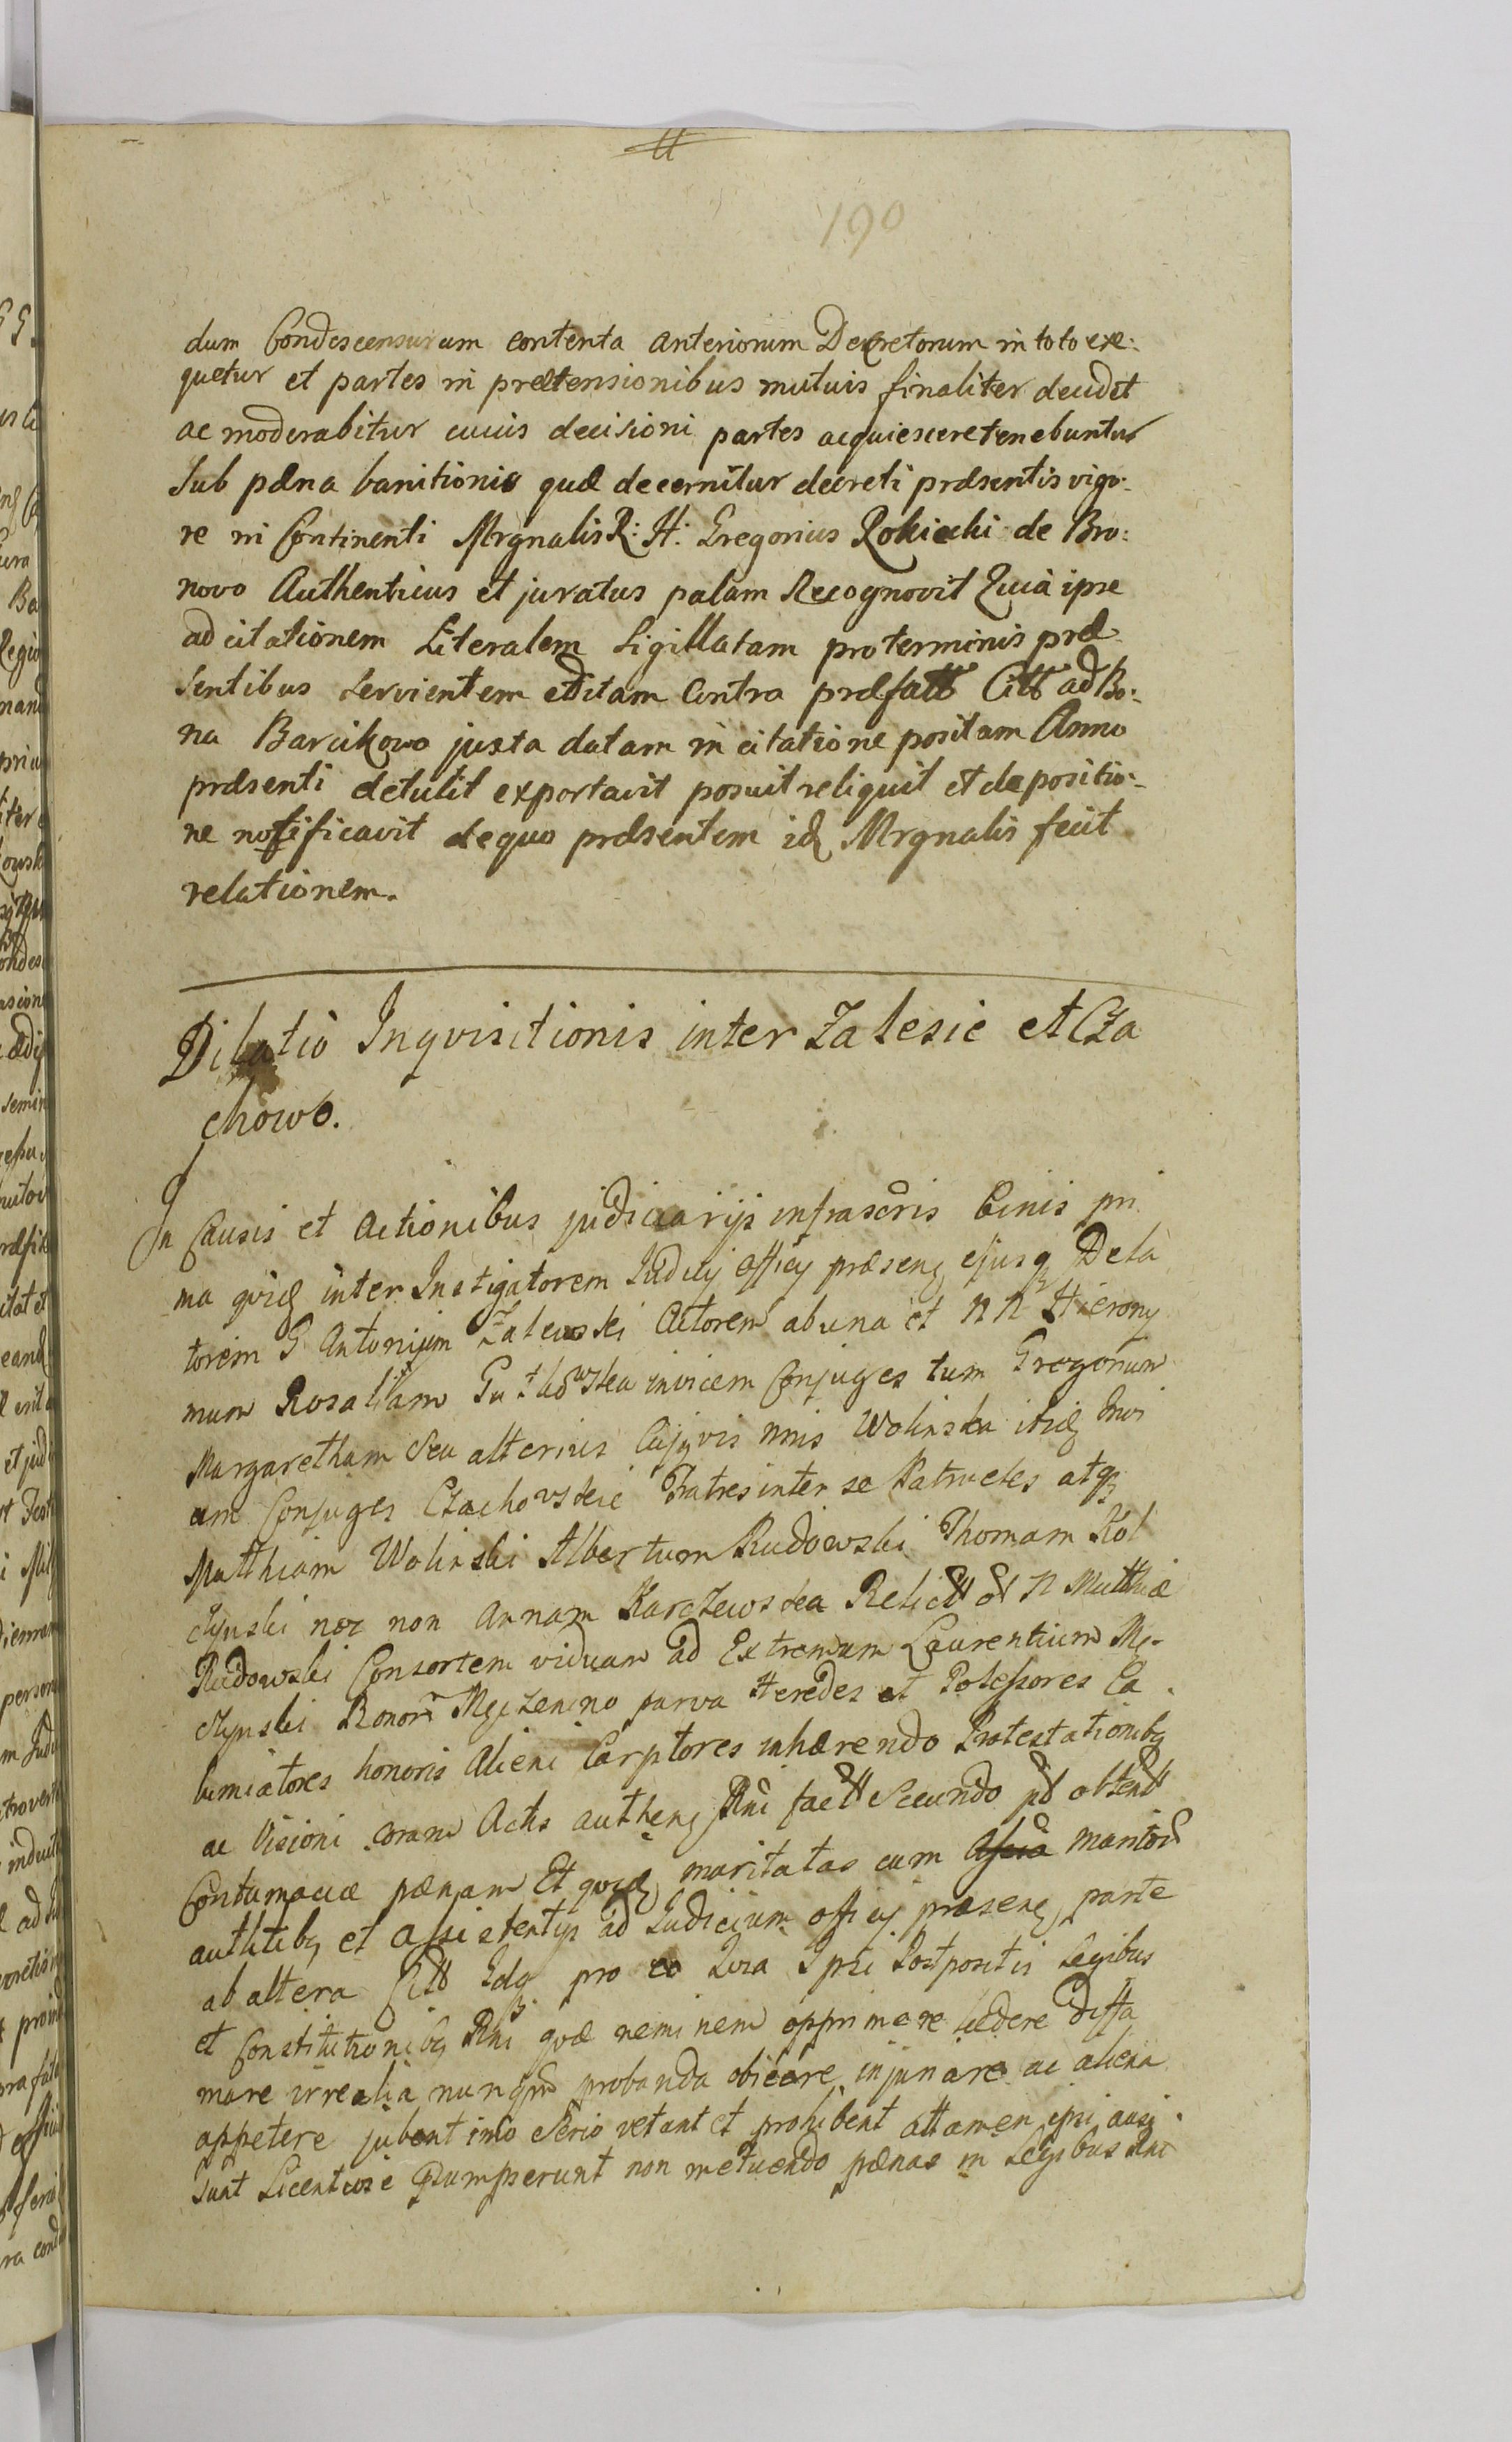 190
dum Condescensurum contenta anteriorum Decretorum in toto exe:
quetur et partes in prætensionibus mutuis finaliter decidet
ac moderabitur cuius decisioni partes acquiescere tenebuntur
sub pæna banitionis quæ decernitur decreti præsentis vigo:
re in Continenti Mrgnalis R: H: Gregorius Rokicki de Bro:
novo Authenticus et juratus palam Recognovit Quia ipse
ad citationem Literalem Sigillatam pro terminis præ
sentibus servientem editam contra præfatt Citt ad Bo:
na Barcikowo juxta datam in citatione positam Anno
præsenti detulit exportavit posuit reliquit et de positio:
ne notificavit de quo præsentem id Mrgnalis fecit
relationem.
Dilatio Inqvisitionis inter Zalesie et Cza
chowo.
In Causis et Actionibus judiciarijs infrascris binis pri
ma qvid inter Instigatorem Judicij officij præsen ejusq Dela
torem G Antonium Zalewski Actorem ab una et NN Hierony
mum Rosaliam invicem Conjuges tum Gregorium
Margaretham seu alterius Cujqvis nnis Wolinska itid Invi
cem Conjuges Czachowskie Fratres inter se Patrueles atq
Matthiam Wolinski Albertum Rudowski Thomam Kol
czynski nec non Annam Karczewska Relictt ol N Matthiæ
Rudowski Consortem viduam ad Extremum Laurentium Mę
czynski Bonor Mężenino parva Heredes et Possessores Ca
lumiatores honoris Alieni Carptores inhærendo Protestationibq
ac Visioni coram Actis authen Rni factt Secundo pd obtentt
Contumaciæ pænam Et qvid maritatas cum maritor
authtibq et assistentijs ad Judicium officij præsen parte
ab altera Citt Idq pro eo Quia Ipsi Postpositis Legibus
et Constitutionibq Rni qvæ neminem opprimere lædere diffa
mare irrealia nunqm probanda obicere injuriare ac aliena
appetere jubent imo serio vetant et prohibent attamen ipsi ausi
sunt Licentiose Psumpserunt non metuendo pænas in Legibus Rni